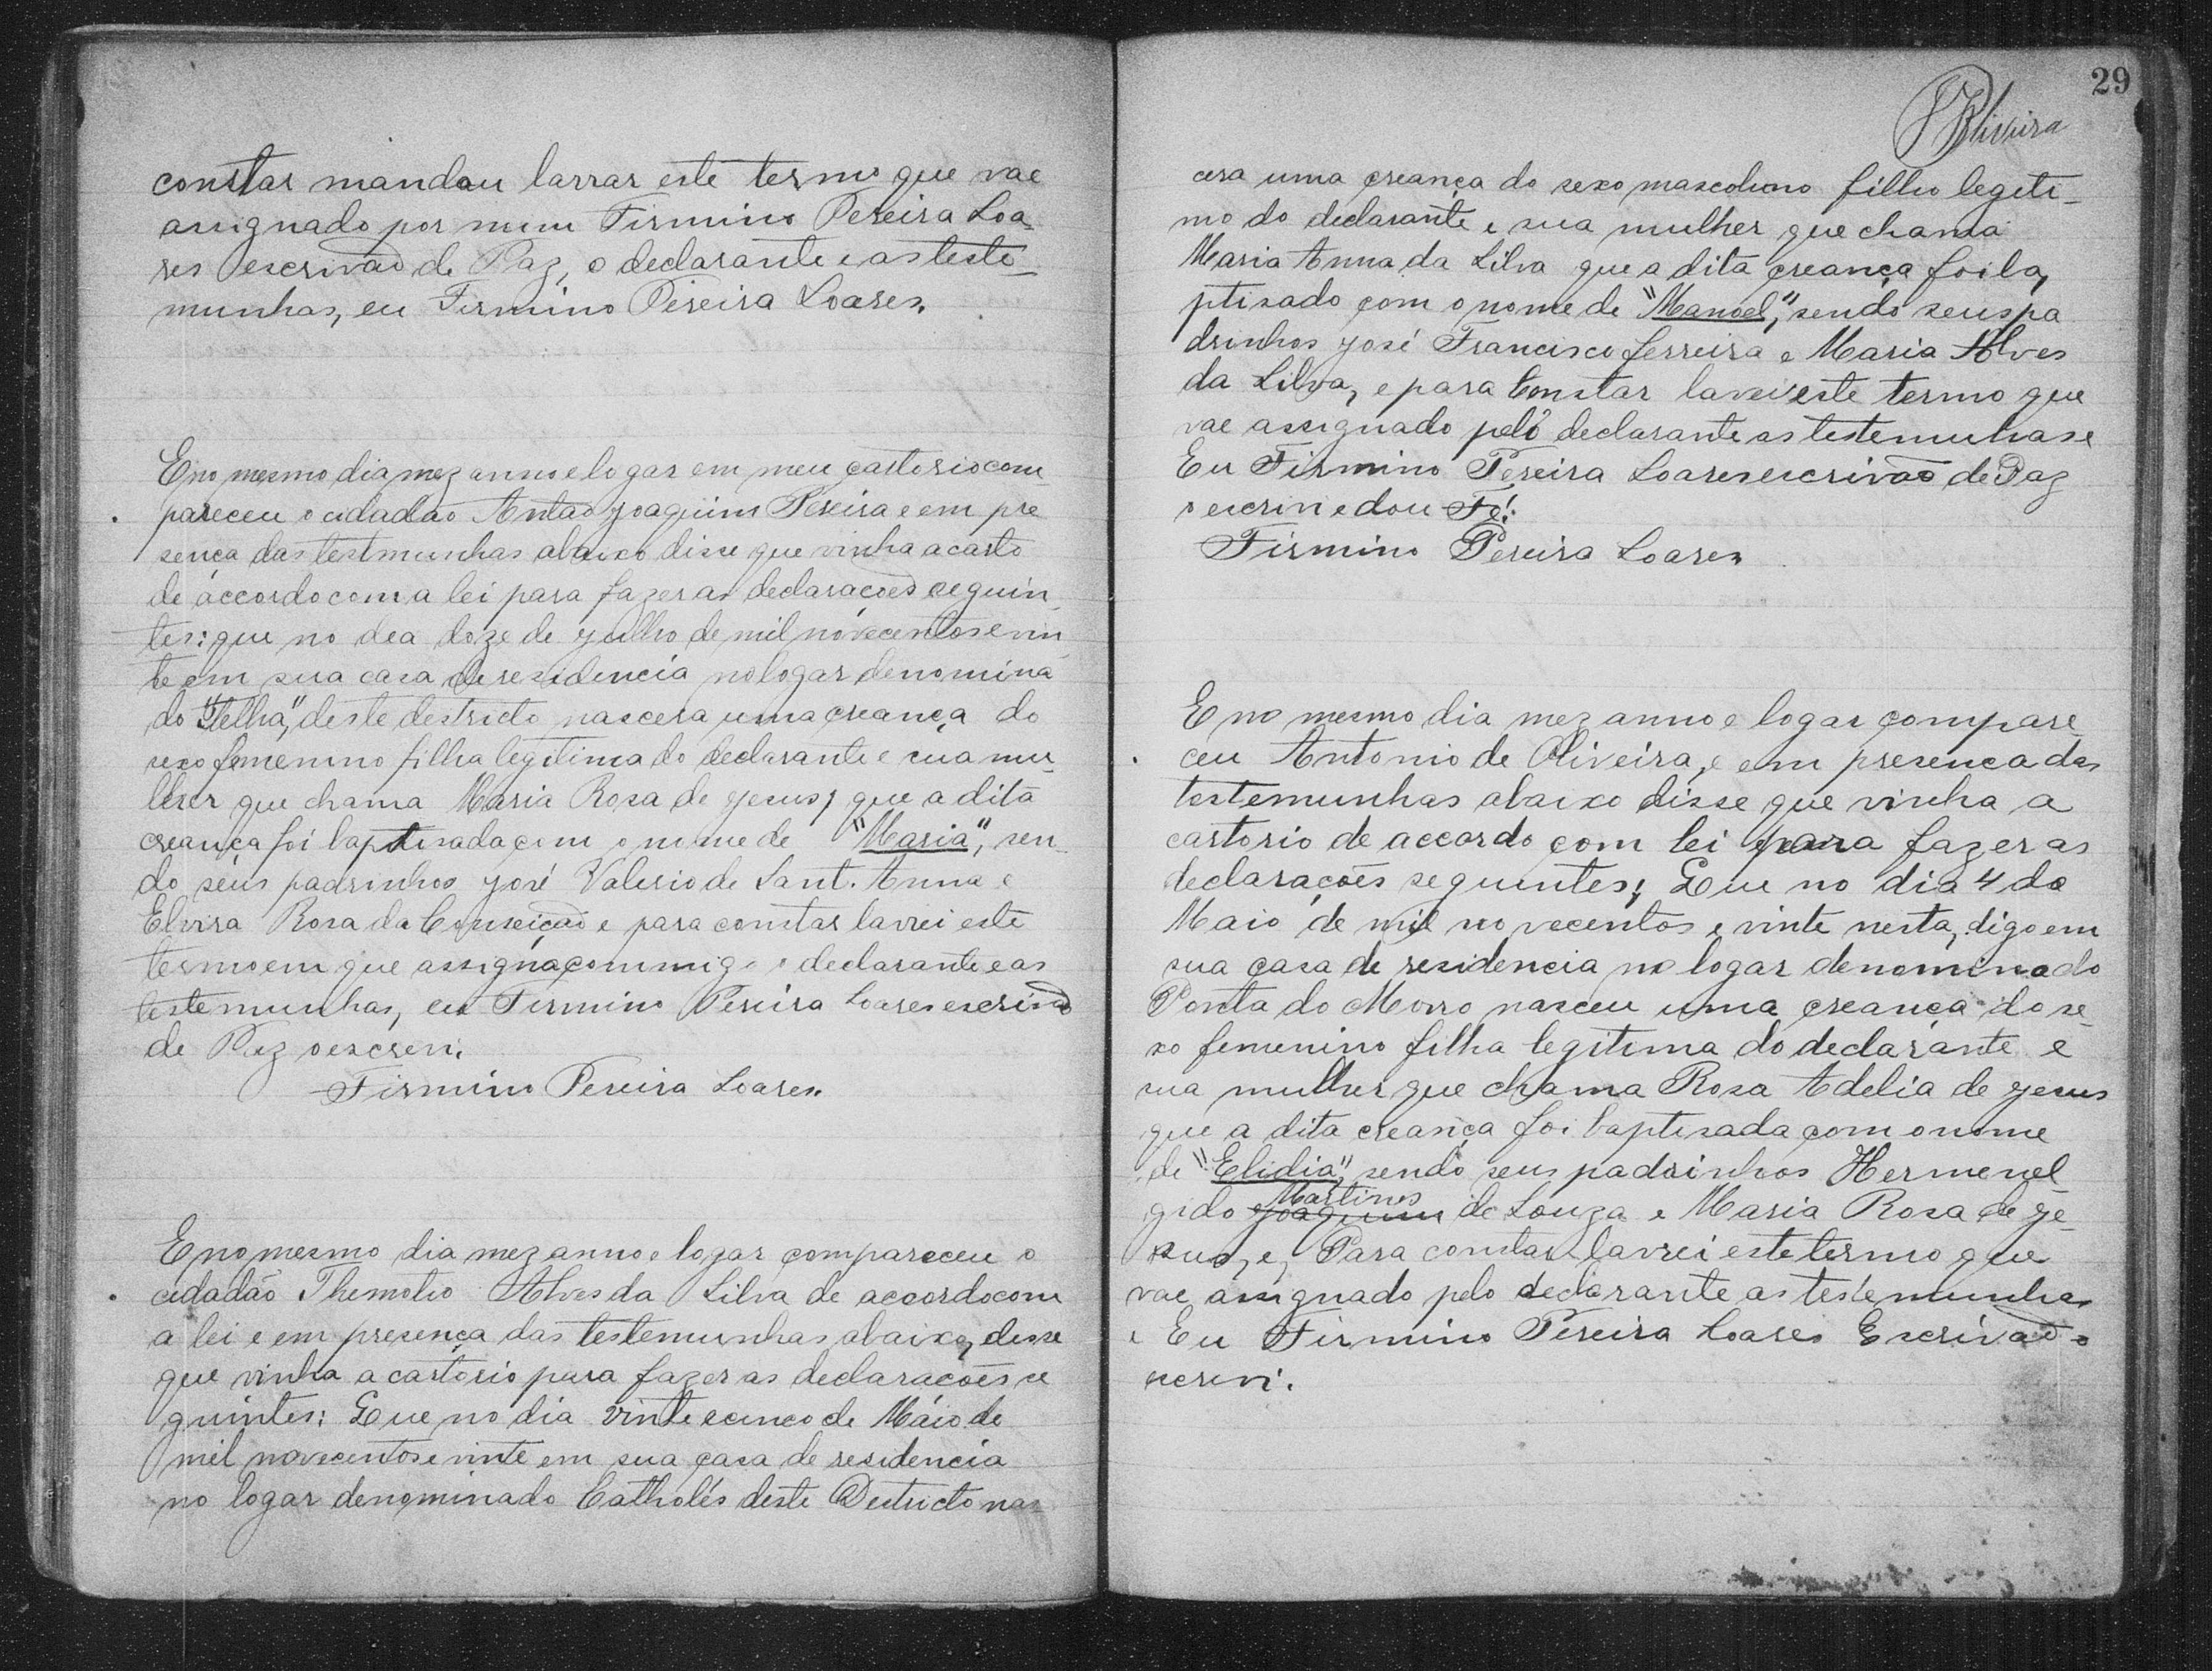 constar mandou larrar este termo que vae
assignado por mim Firmino Pereira Soa
res escrivão de Paz, o declarante e as teste
munhas, eu Firmino Pereira Soares.
E no mesmo dia mez anno e logar em meu cartorio com
pareceu o cidadão Antão Joaquim Pereira e em pre
sença das testmunhas abaixo disse que vinha a carto
de accordo com a lei para fazer as declarações seguin
tes: que no dea doze de Julho de mil novecentos e vin
te em sua casa de residencia no logar denomina
do "Telha", deste destricto nascera uma creança do
sexo femenino filha legitima do declarante e sua mu
lher que chama Maria Rosa de Jesus, que a dita
creança foi baptisada com o nome de "Maria", sen
do seus padrinhos José Valerio de Sant. Anna e
Elvira Rosa da Conseição e para constar lavrei este
termo em que assigna commigo o declarante e as
testemunhas, eu Firmino Pereira Soares escrivão
de Paz o escrevi.
Firmino Pereira Soares.
E no mesmo dia mez anno e logar compareceu o
cidadão Themotio Alves da Silva de accordo com
a lei e em presença das testemunhas abaixo, disse
que vinha a cartorio para fazer as declarações se
guintes: Que no dia vinte e cinco de Maio de
mil novecentos e vinte em sua casa de residencia
no logar denominado Catholés deste Destricto nas
29
cera uma creança do sexo mascolino filho legeti
mo do declarante e sua mulher que chama
Maria Anna da Silva que a dita creança foi ba
ptisado com o nome de "Manoel", sendo seus pa
drinhos José Francisco Ferreira e Maria Alves
da Silva, e para constar lavrei este termo que
vae assignado pelo declarante as testemunhas e
Eu Firmino Pereira Soares escrivão de Paz
o escrivi e dou Fé.
Firmino Pereira Soares
E no mesmo dia mez anno e logar compare
ceu Antonio de Oliveira, e em presenca das
testemunhas abaixo disse que vinha a
cartorio de accordo com lei para fazer as
declarações seguintes; Que no dia 4 de
Maio de mil novecentos e vinte nesta, digo em
sua casa de residencia no logar denominado
Ponta do Morro nasceu uma creança do se
xo femenino filha legitima do declarante e
sua mulher que chama Rosa Adelia de Jesus
que a dita creança foi baptisada com o nome
de "Elidia", sendo seus padrinhos Hermenel
gido Joaquim Martins de Souza e Maria Rosa de Je
sus, e, Para constar lavrei este termo que
vae assignado pelo declarante as testemunhas
e Eu Firmino Pereira Soares Escrivão o
escrevi.